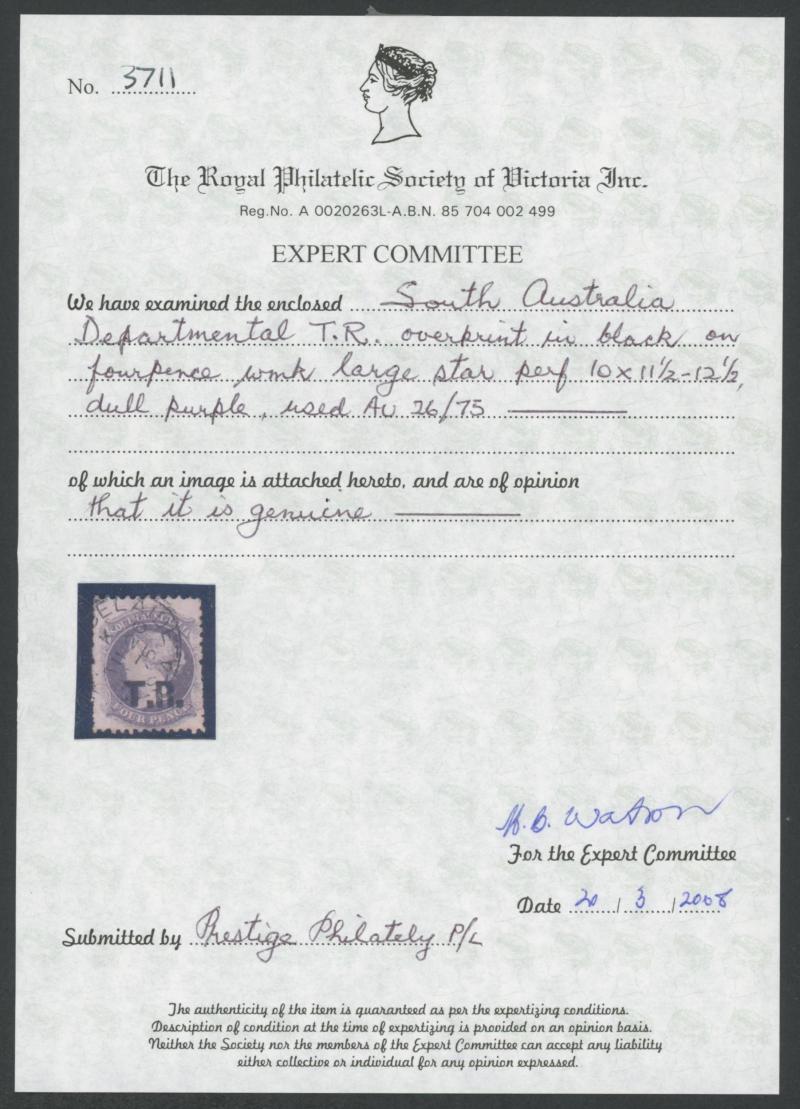 No. 3711
The Royal Philatelic Society of Victoria Inc.
Reg.No. A 0020263L-A.B.N. 85 704 002 499
EXPERT COMMITTEE
We have examined the enclosed South Australia
Departmental T.R. overprint in black on
fourpence wmk large star perf 10x11½-12½,
dull purple, used AU 26/75
of which an image is attached hereto, and are of opinion
that it is genuine
T.R.
FOUR PENCE
H.B. Watson
For the Expert Committee
Date 20 / 3 / 2008
Submitted by Prestige Philately P/L
The authenticity of the item is guaranteed as per the expertizing conditions.
Description of condition at the time of expertizing is provided on an opinion basis.
Neither the Society nor the members of the Expert Committee can accept any liability
either collective or individual for any opinion expressed.